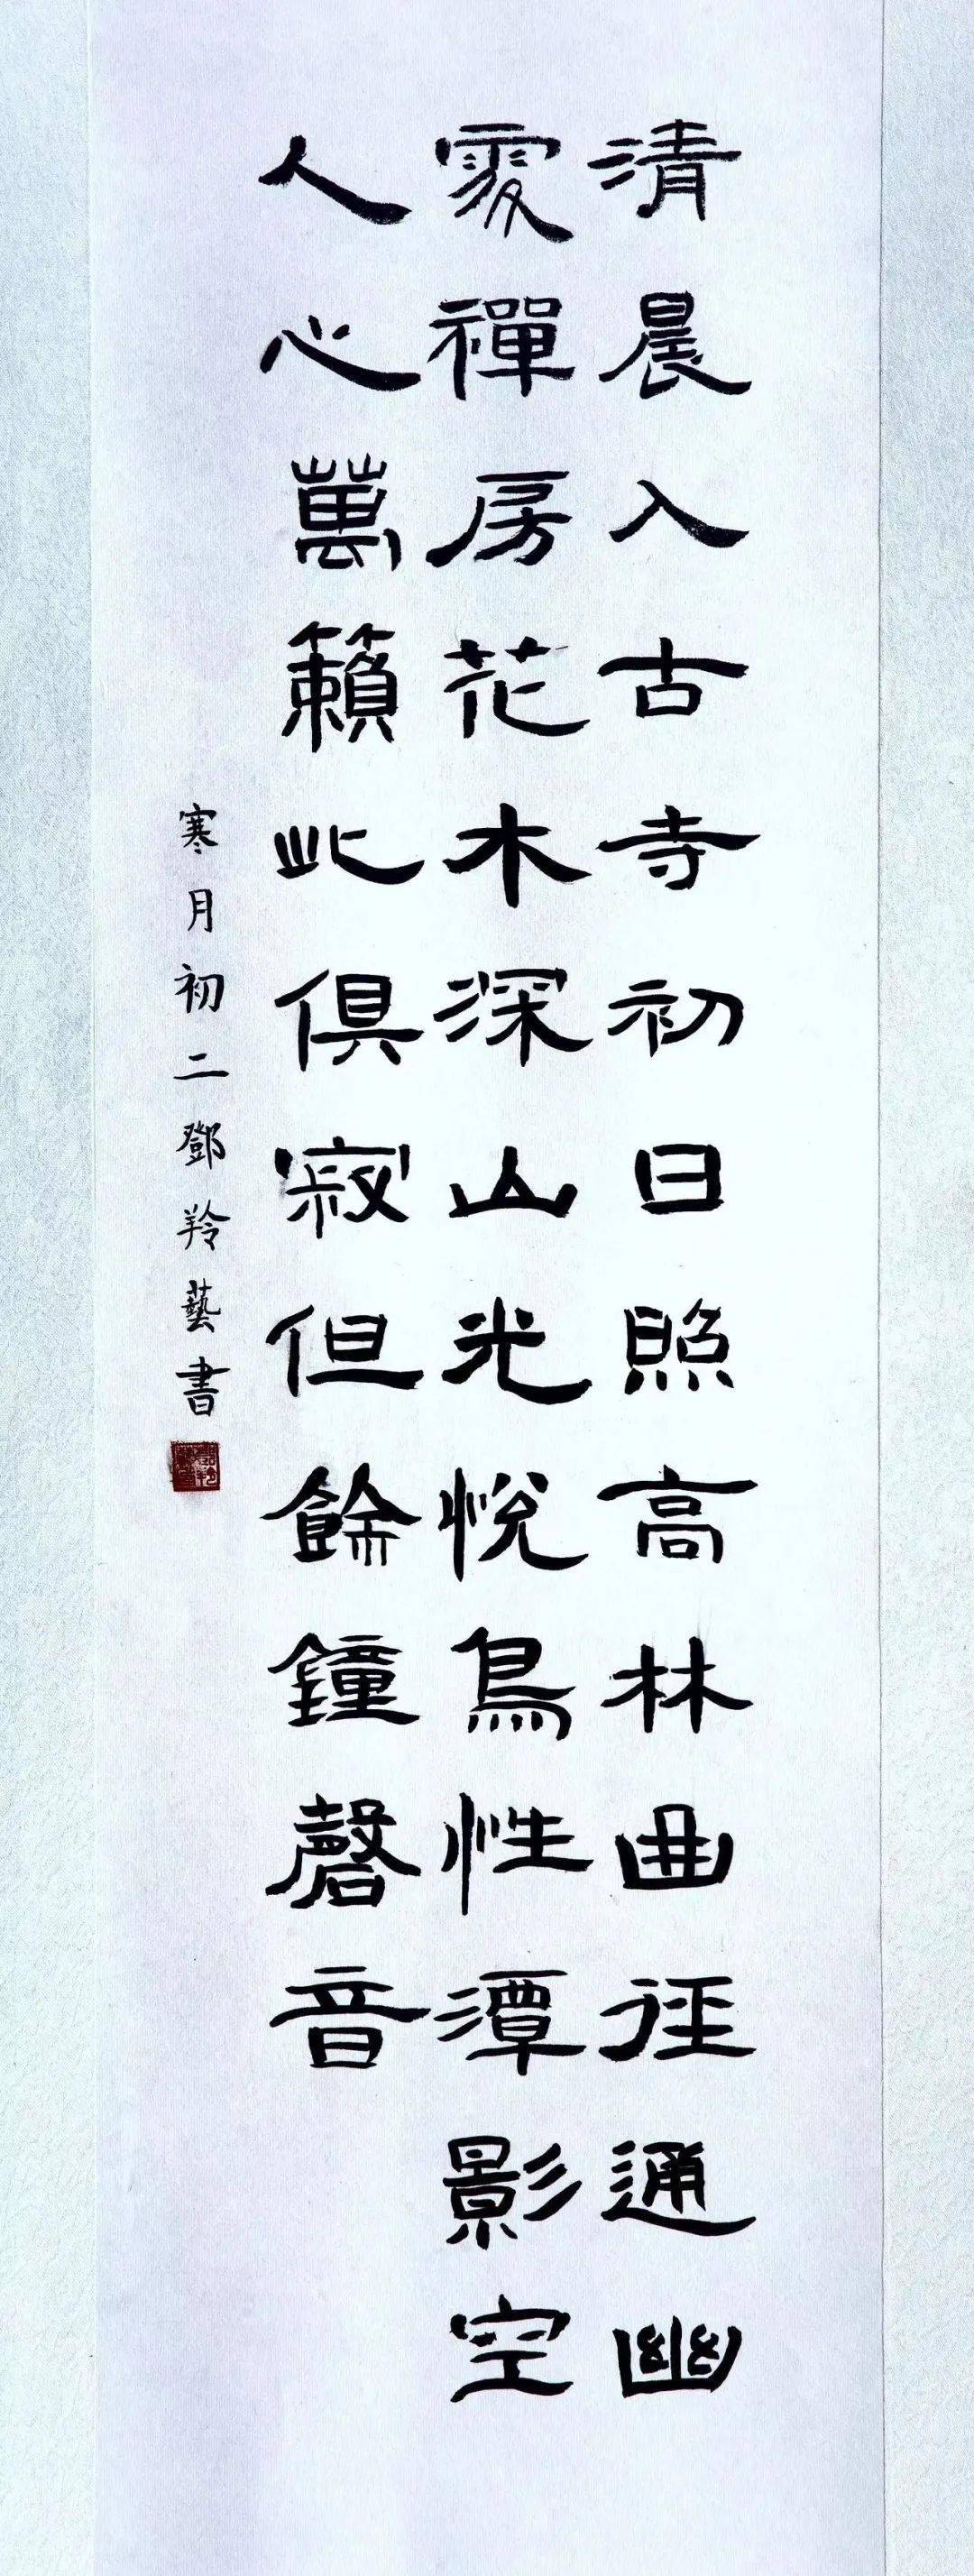 清晨入古寺初日照高林曲徑通幽
處禪房花木深山光悅鳥性潭影空
人心萬籟此俱寂但餘鐘磬音
寒月初二鄧羚藝書